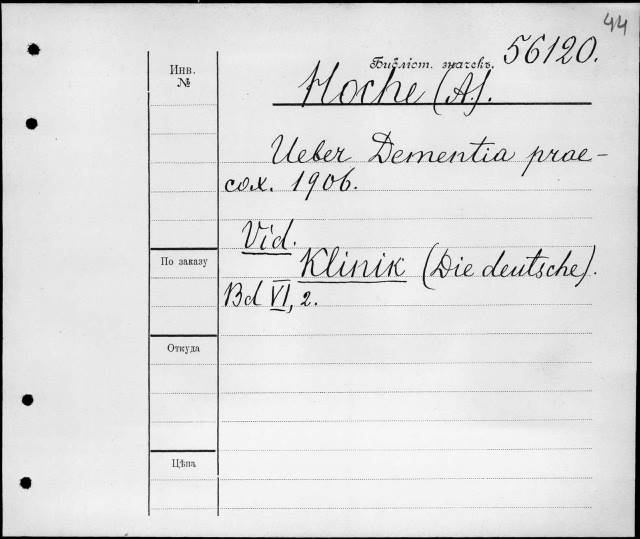 44
Инв.
№
Библіот. значекъ. 56120.
Hoche (A.).
Ueber Dementia prae-
cox. 1906.
Vid.
Klinik (Die deutsche).
Bd VI, 2.
По заказу
Откуда
Цѣна